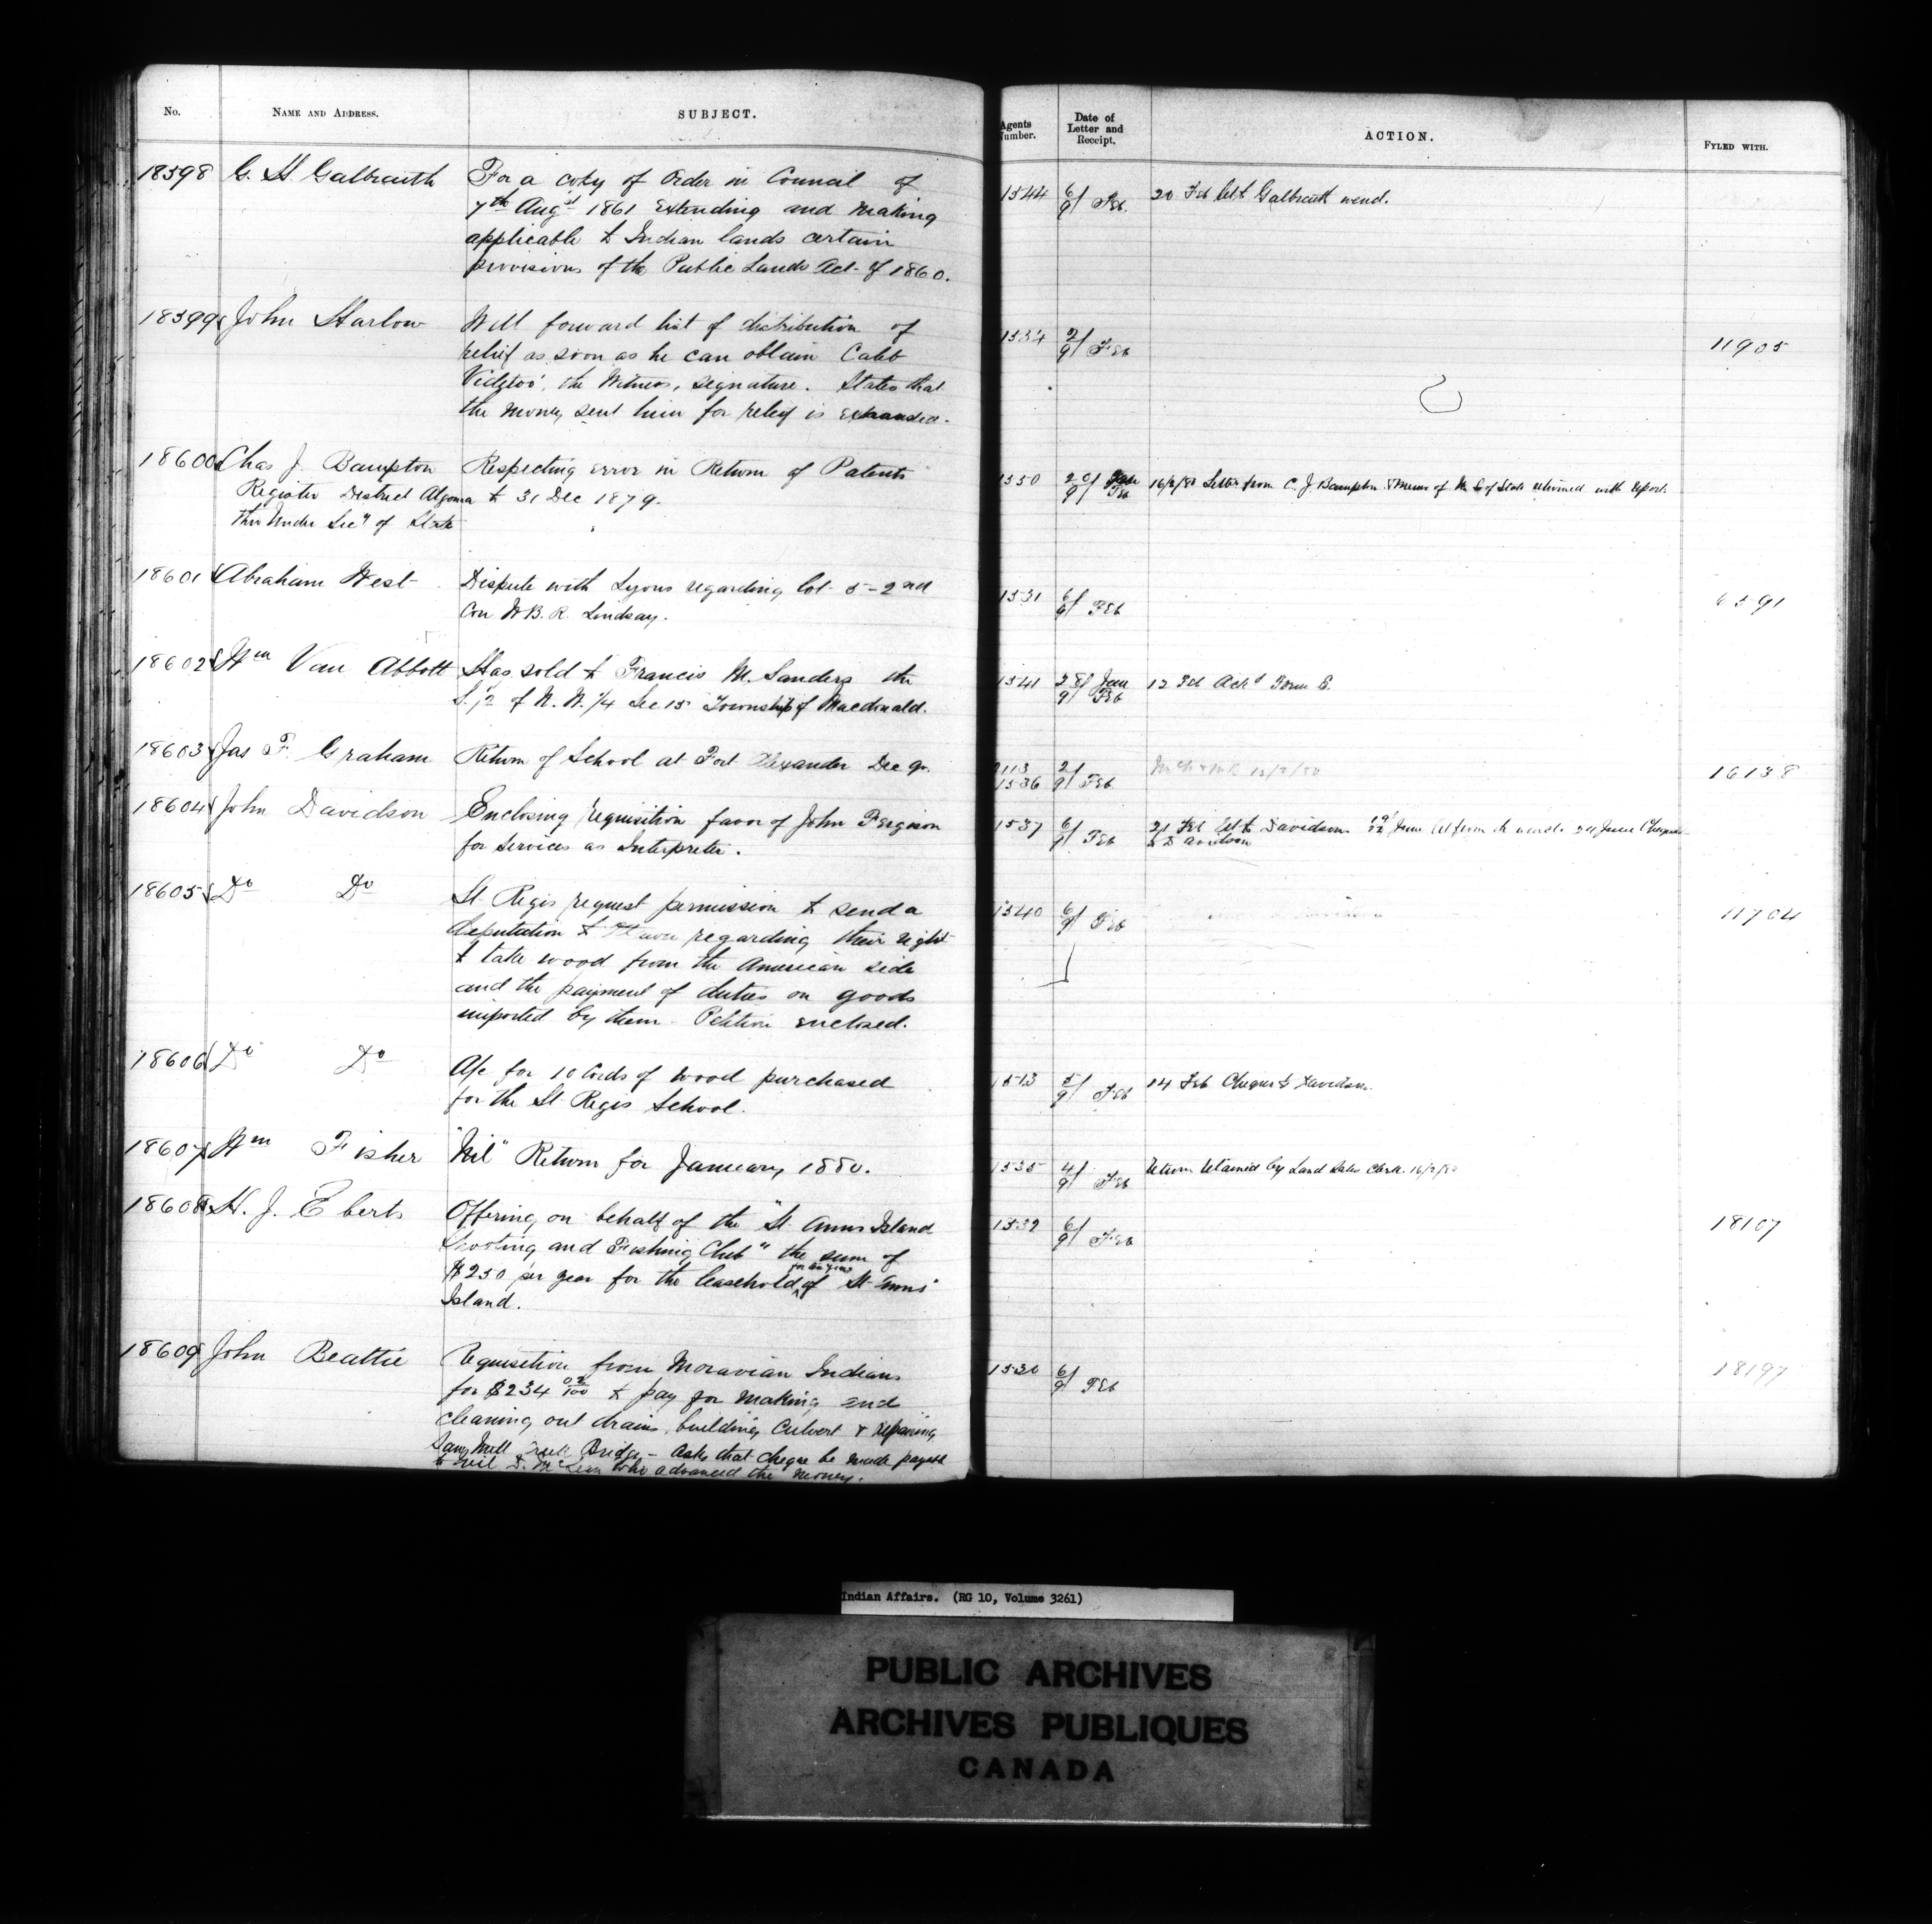 No.
NAME AND ADDRESS.
SUBJECT.
Agents Number.
Date of Letter and Receipt.
ACTION.
FYLED WITH.
18598 G. H. Galbraith
For a copy of Order in Council of
7th Augst 1861 Extending and making
applicable to Indian lands certain
provisions of the Public Lands Act of 1860.
1544 6/9 Feb.
20 Feb let Galbraith
18599 John Harlow
Will forward list of distribution of
relief as soon as he can obtain Caleb
the Witness, signature. States that
the money sent him for relief is
1534 2/9 Feb
11905
18600 Chas J. Bampton
Register District Algoma
Under Secy of State
Respecting error in Return of Patents
to 31 Dec 1879.
1550 20/9 Jan Feb
16/2/80 Letter from C. J. Bampton & Memo of of State returned with report.
18601 Abraham West
Dispute with Lyons regarding lot 5-2nd
Con W B. R. Lindsay.
1531 6/9 Feb
6591
18602 Wm Van Abbott
Has sold to Francis M. Sanders the
S. 1/2 of N. W. 1/4 Sec 15 Township of Macdonald.
1541 28/9 Jan Feb
12 Feb Ackd Form B.
18603 Jas F. Graham
Return of School at Fort Alexander Dec qr.
1536 2/9 Feb
16138
18604 John Davidson
Enclosing requisition favor of John Ferguson
for services as Interpreter.
1537 6/9 Feb
21 Feb let to Davidson
to Davidson
18605 Do Do
St. Regis request permission to send a
deputation to regarding their right
to take wood from the American side
and the payment of duties on goods
imported by them - Petition enclosed.
1540 6/9 Feb
11704
18606 Do Do
A/c for 10 Cords of wood purchased
for the St Regis School.
1513 5/9 Feb
14 Feb Cheque to Davidson.
18607 Wm Fisher
"Nil" Return for January 1880.
1535 4/9 Feb
Return retained by Land Sales Clerk. 16/2/80
18608 H. J. Eberts
Offering on behalf of the "St. Anns Island
Shooting and Fishing Club" the sum of
$250 per year for the leasehold of St. Anns
Island.
1532 6/9 Feb
18107
18609 John Beattie
Requisition from Moravian Indians
for $234 02/100 to pay for making and
cleaning out drains, building Culvert & repairing
Saw Mill Creek Bridge - Asks that cheque be made payable
to who advanced the money.
1530 6/9 Feb
18197
Indian Affairs. (RG 10, Volume 3261)
PUBLIC ARCHIVES
ARCHIVES PUBLIQUES
CANADA